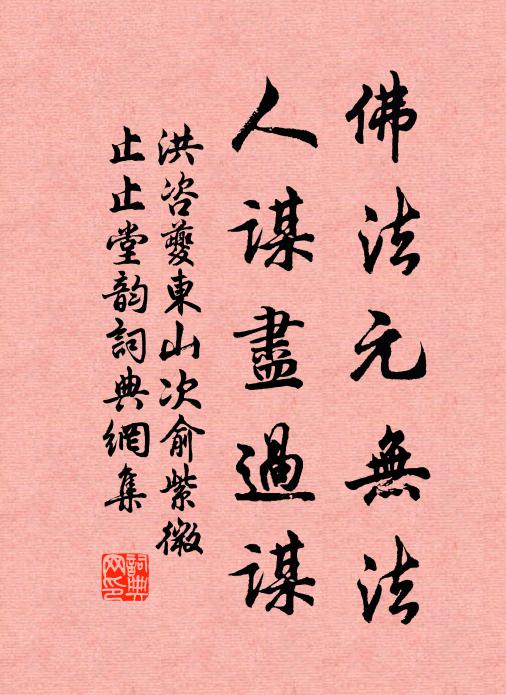 佛法元無法
人謀盡過謀
洪咨夔東山次俞紫微
止止堂韵詞典網集
詞典网印